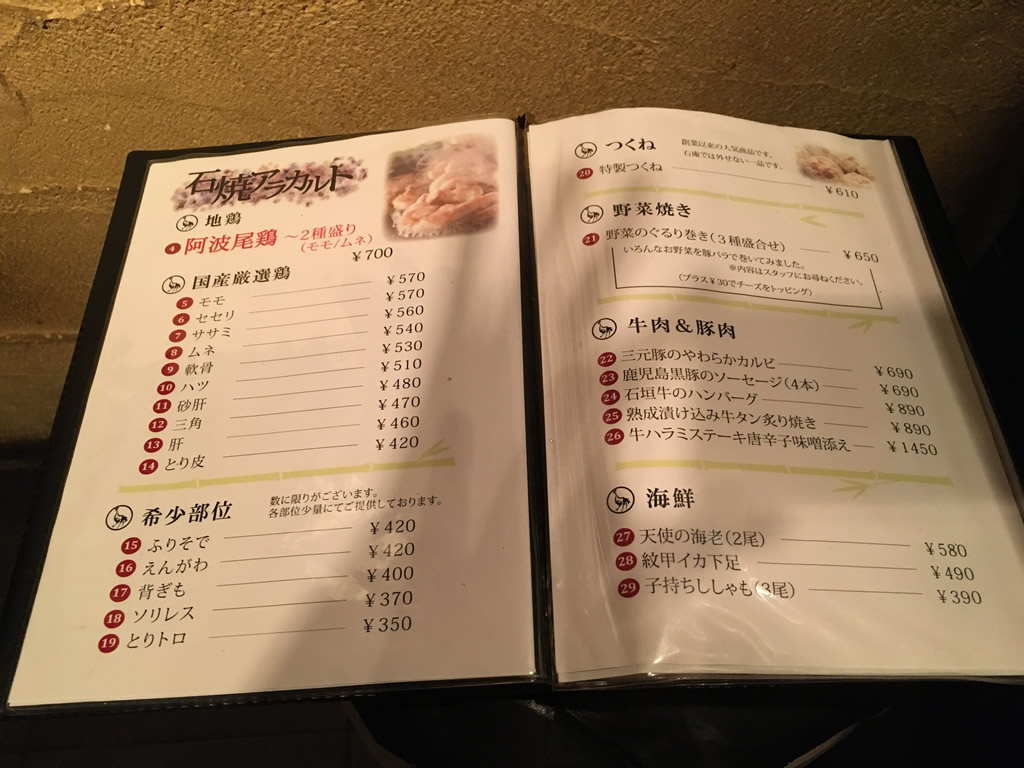 石焼アラカルト
地鶏
4 阿波尾鶏 ～2種盛り
(モモ/ムネ)
¥700
国産厳選鶏
5 モモ ¥570
6 セセリ ¥570
7 ササミ ¥560
8 ムネ ¥540
9 軟骨 ¥530
10 ハツ ¥510
11 砂肝 ¥480
12 三角 ¥470
13 肝 ¥460
14 とり皮 ¥420
希少部位
数に限りがございます。
各部位少量にてご提供しております。
15 ふりそで ¥420
16 えんがわ ¥420
17 背ぎも ¥400
18 ソリレス ¥370
19 とりトロ ¥350
つくね
創業以来の人気商品です。
石庵では外せない一品です。
20 特製つくね ¥610
野菜焼き
21 野菜のぐるり巻き(3種盛合せ) ¥650
いろんなお野菜を豚バラで巻いてみました。
※内容はスタッフにお尋ねください。
(プラス¥30でチーズをトッピング)
牛肉&豚肉
22 三元豚のやわらかカルビ ¥690
23 鹿児島黒豚のソーセージ(4本) ¥690
24 石垣牛のハンバーグ ¥890
25 熟成漬け込み牛タン炙り焼き ¥890
26 牛ハラミステーキ唐辛子味噌添え ¥1450
海鮮
27 天使の海老(2尾) ¥580
28 紋甲イカ下足 ¥490
29 子持ちししゃも(3尾) ¥390